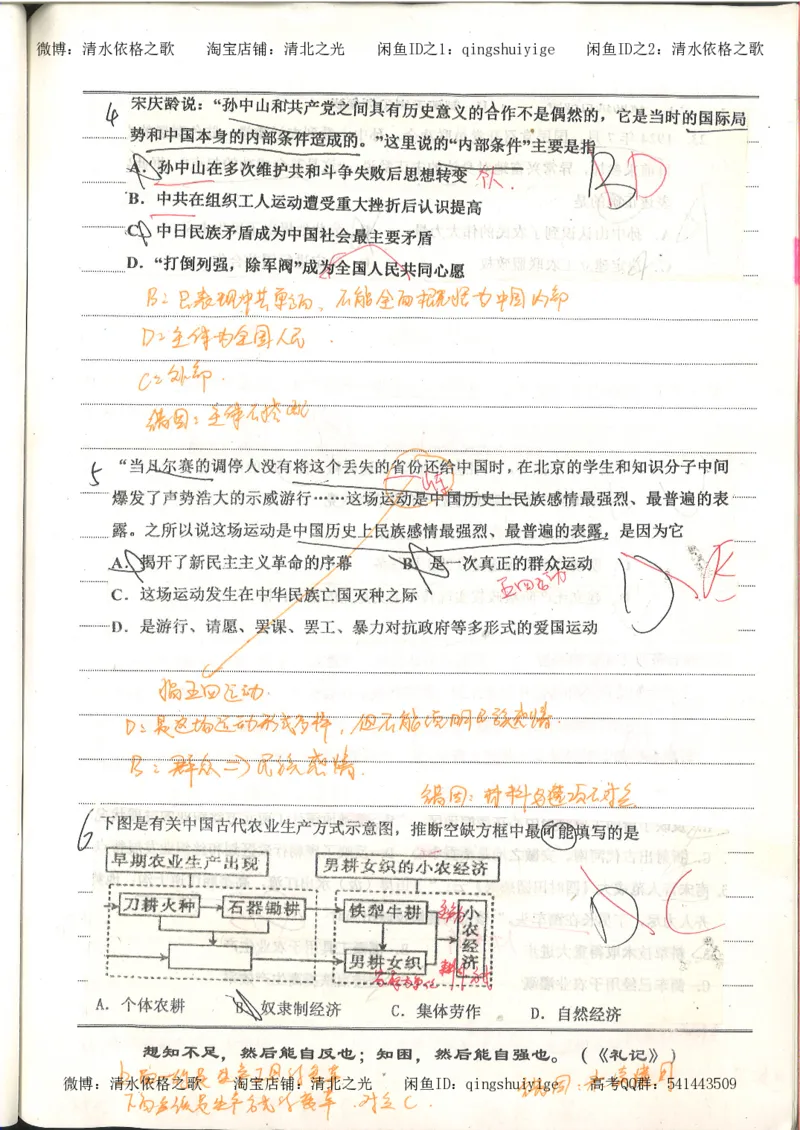 微博：清水依格之歌 淘宝店铺：清北之光 闲鱼ID之1：qingshuiyige 闲鱼ID之2：清水依格之歌
4 宋庆龄说：“孙中山和共产党之间具有历史意义的合作不是偶然的，它是当时的国际局
势和中国本身的内部条件造成的。”这里说的“内部条件”主要是指
A．孙中山在多次维护共和斗争失败后思想转变 个人． B D
B．中共在组织工人运动遭受重大挫折后认识提高
C．中日民族矛盾成为中国社会最主要矛盾
D．“打倒列强，除军阀”成为全国人民共同心愿
B：只表现中共单方面、不能全面概括为中国内部
D：主体为全国人民．
C：外部．
错因：主体不搭配
5 “当凡尔赛的调停人没有将这个丢失的省份还给中国时，在北京的学生和知识分子中间
山东
爆发了声势浩大的示威游行……这场运动是中国历史上民族感情最强烈、最普遍的表
露。之所以说这场运动是中国历史上民族感情最强烈、最普遍的表露，是因为它
A．揭开了新民主主义革命的序幕 B．是一次真正的群众运动
五四运动 D
C．这场运动发生在中华民族亡国灭种之际
D．是游行、请愿、罢课、罢工、暴力对抗政府等多形式的爱国运动
指五四运动．
D：是这场运动形式多样，但不能说明民族感情．
B：群众⇒民族感情．
错因：材料与选项不对应
6 下图是有关中国古代农业生产方式示意图，推断空缺方框中最可能填写的是
早期农业生产出现 男耕女织的小农经济
刀耕火种 石器锄耕 铁犁牛耕 小农经济
男耕女织
D C
A．个体农耕 B．奴隶制经济 C．集体劳作 D．自然经济
想知不足，然后能自反也；知困，然后能自强也。（《礼记》）
微博：清水依格之歌 淘宝店铺：清北之光 闲鱼ID：qingshuiyige 高考QQ群：541443509
对应C．